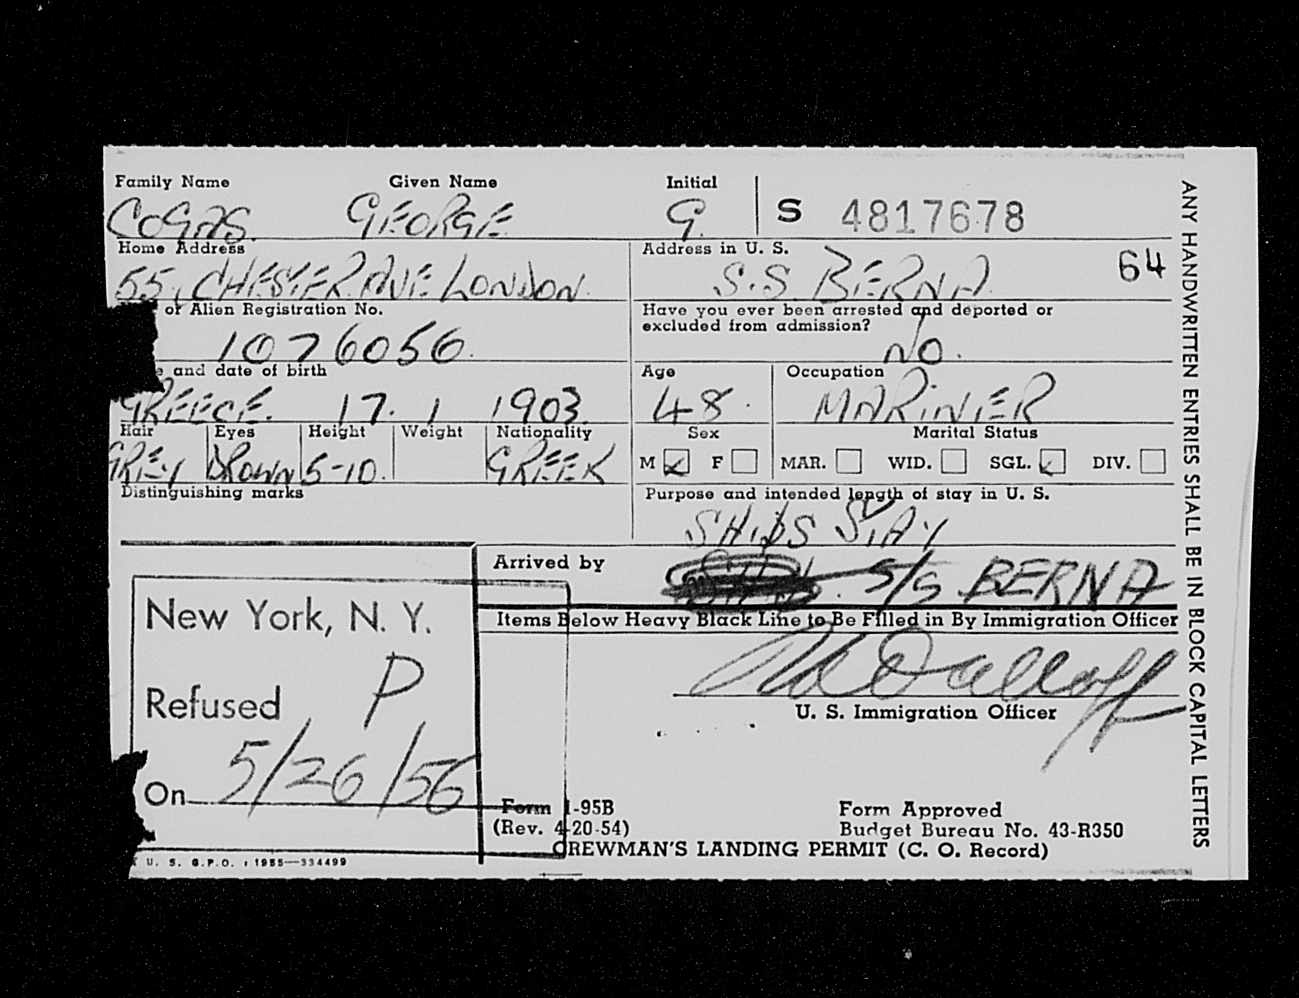 Family Name Given Name Initial
COGAS. GEORGE G. S 4817678
Home Address Address in U. S. 64
55, CHESTER AVE LONDON. S.S BERNA.
or Alien Registration No. Have you ever been arrested and deported or
excluded from admission?
1076056. NO.
e and date of birth Age Occupation
GREECE. 17. 1 1903. 48. MARINER
Hair Eyes Height Weight Nationality Sex Marital Status
GREY BROWN 5-10. GREEK M F MAR. WID. SGL. DIV.
Distinguishing marks Purpose and intended length of stay in U. S.
SHIPS STAY
Arrived by S/S BERNA
Items Below Heavy Black Line to Be Filled in By Immigration Officer
New York, N. Y.
Refused P
U. S. Immigration Officer
On 5/26/56
Form I-95B Form Approved
(Rev. 4-20-54) Budget Bureau No. 43-R350
CREWMAN'S LANDING PERMIT (C. O. Record)
U. S. G.P.O. : 1955—334499
ANY HANDWRITTEN ENTRIES SHALL BE IN BLOCK CAPITAL LETTERS